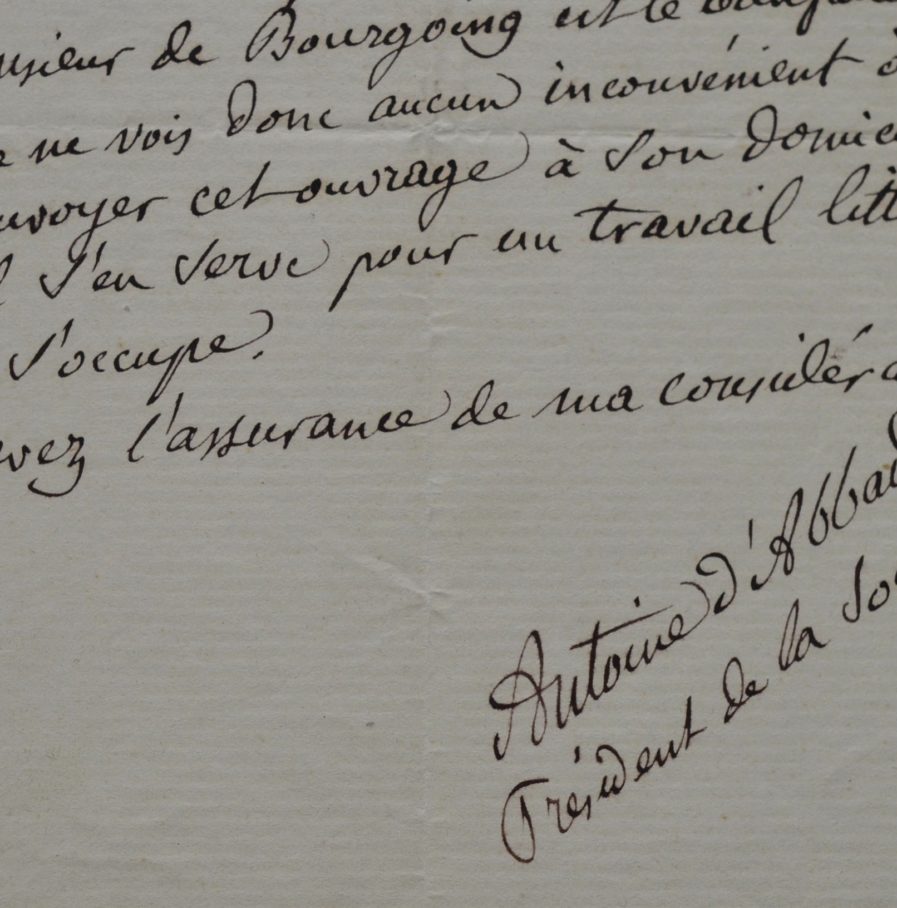 nsieur de Bourgoing est le
ne vois donc aucun inconvénient à
nvoyer cet ouvrage à son domic
l s'en serve pour un travail litt
s'occupe.
evez l'assurance de ma considéra
Antoine d'Abbad
Président de la So